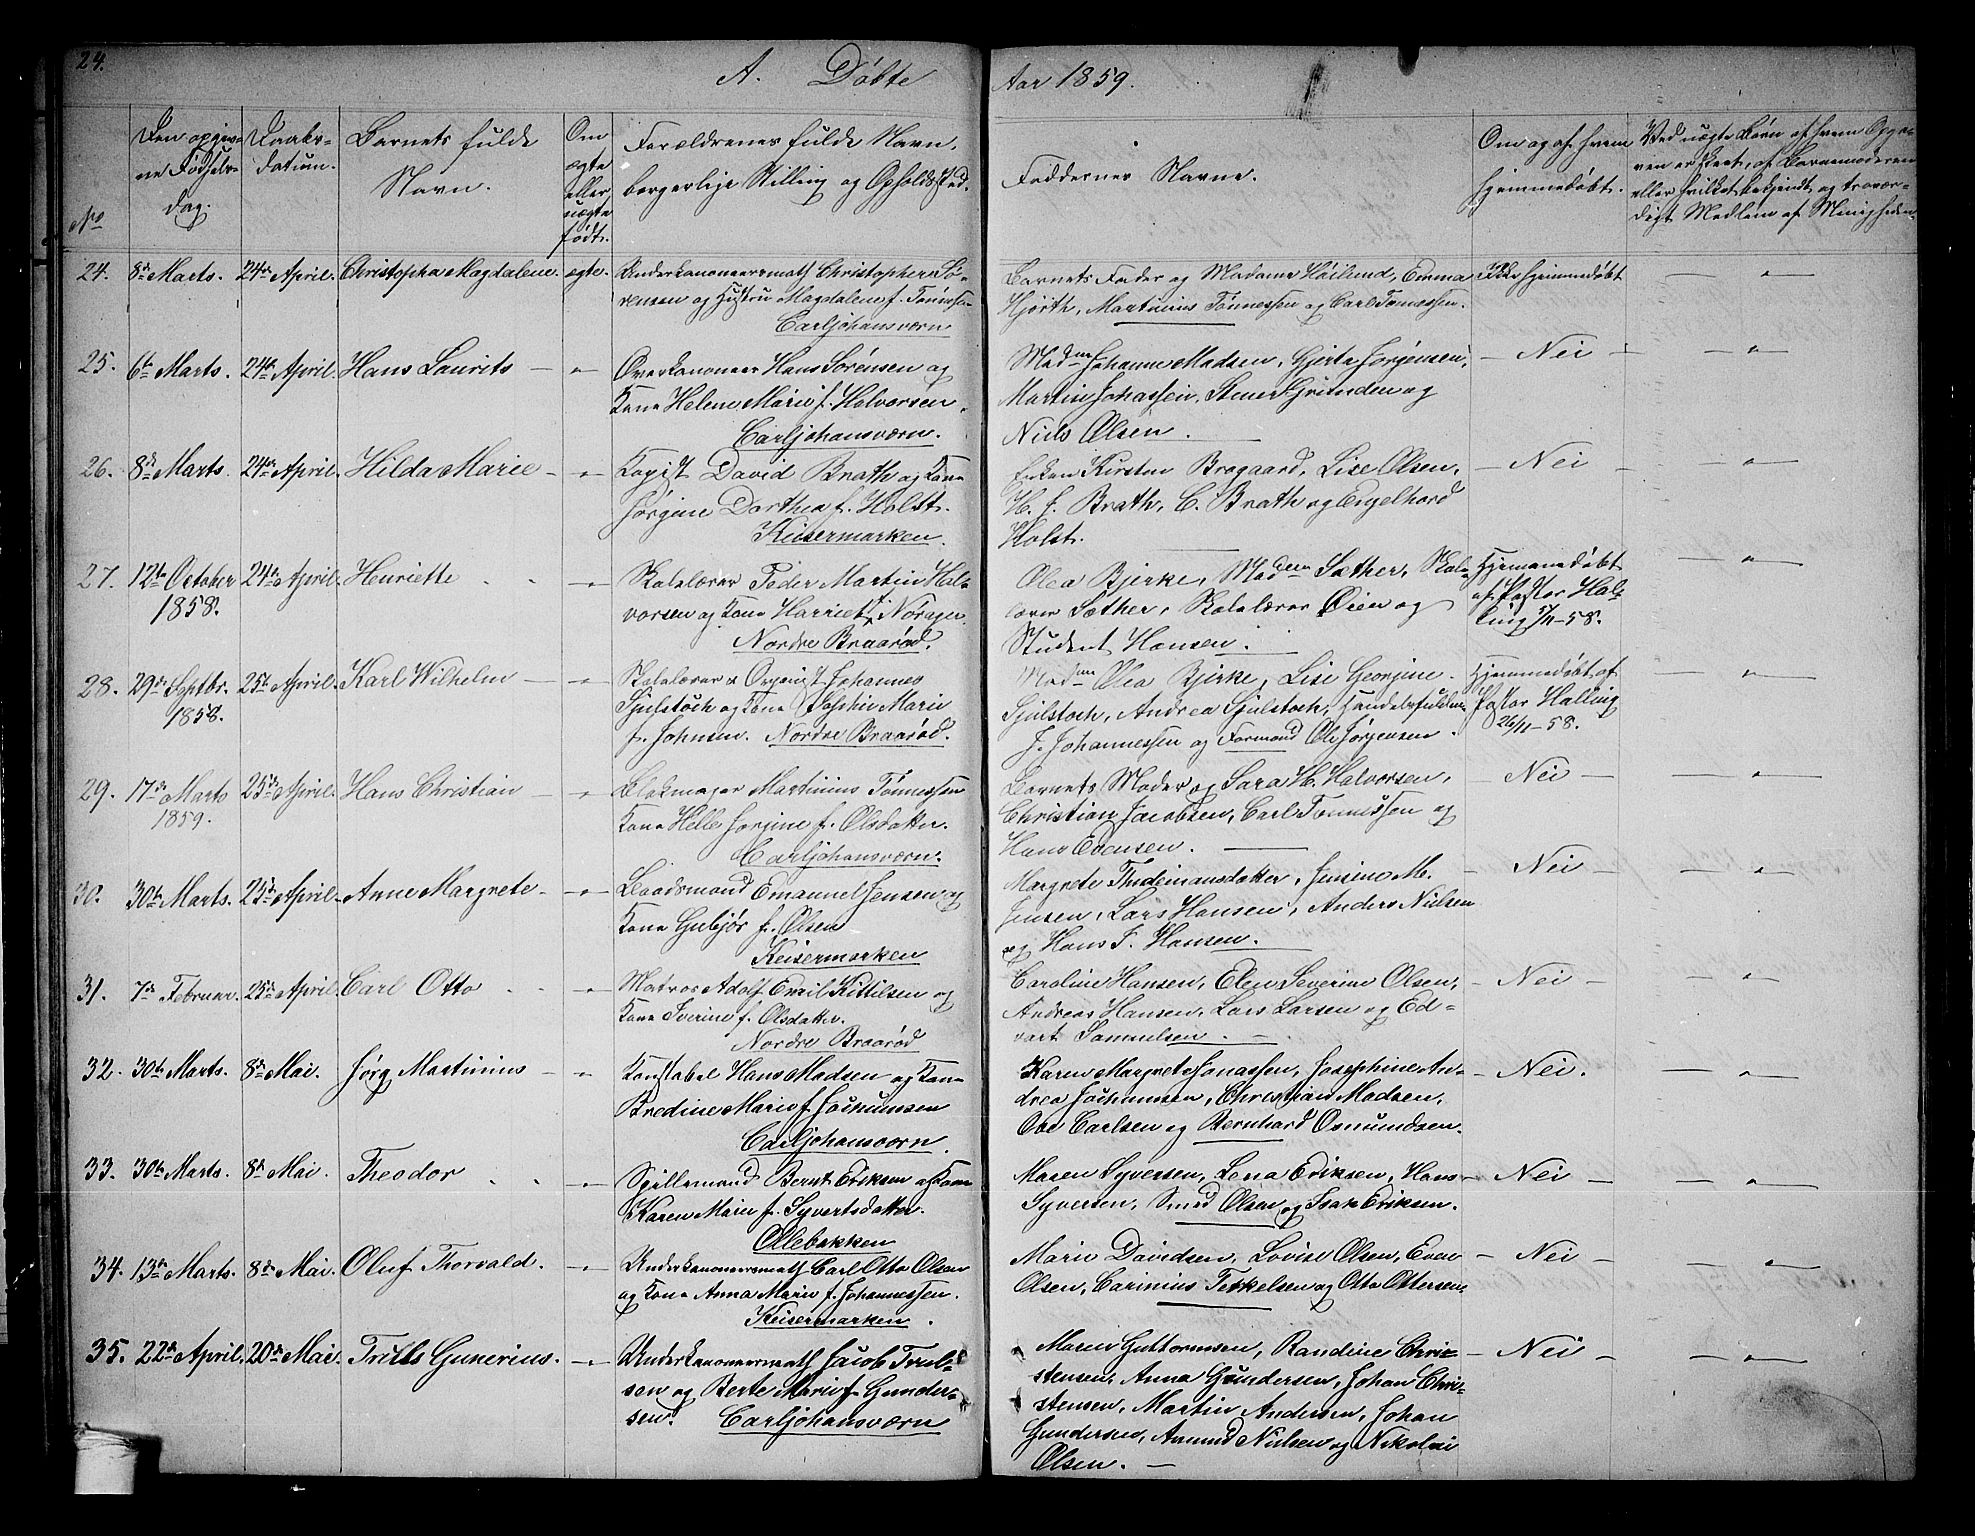 24.
A. Døbte
Aar 1859.
No
Den opgiv-
ne Fødsels-
dag.
Daabs-
datum.
Barnets fulde
Navn.
Om
ægte
eller
uægte
født.
Forældrenes fulde Navn,
borgerlige Stilling og Opholdssted.
Faddernes Navne.
Om og af hvem
hjemmedøbt.
Ved uægte Børn af hvem Opga-
ven er skeet, af Barnemoderen
eller hvilket bekjendt og trovær-
digt Medlem af Menigheden.
24. 8de Marts. 24de April. Christopha Magdalene. ægte.
Underkanoneersmath Christopher Sø-
rensen og Hustru Magdalene f. Tønnesen
Carljohansværn
Barnets Fader og Madame Høilund, Emma
Hjörth, Martinius Tønnessen og Carl Tønnessen.
Ikke hjemmedøbt — " —
25. 6te Marts. 24de April. Hans Laurits — " —
Overkanoneer Hans Sørensen og
Kone Helene Marie f. Halvorsen.
Carljohansværn.
Madme Johanne Madsen, Gjerte Jørgensen,
Martin Johassen, Stener Grinden og
Niels Olsen.
— Nei — — " —
26. 8de Marts. 24de April. Hilda Marie — " —
Kopist David Brath og Kone
Jørgine Dorthea f. Holst.
Keisermarken.
Enken Kirsten Bragaard, Lise Olsen,
H. J. Brath, C. Brath og Engelhard
Holst.
— Nei — — " —
27. 12te October 24de April. Henriette — " —
1858.
Skolelærer Peder Martin Hal-
vorsen og Kone Harriet f. Norager.
Nordre Braarød.
Olea Bjerke, Madme Sæther, Skole-
lærer Sæther, Skolelærer Øien og
Student Hansen.
Hjemmedøbt
af Pastor Hal-
ling 5/11-58.
— " —
28. 29de Septbr. 25de April. Karl Wilhelm — " —
1858.
Skolelærer & Organist Johannes
Sjulstoch og Kone Sophie Marie
f. Johnsen. Nordre Braarød.
Madme Olea Bjerke, Lise Georgine
Sjulstoch, Andrea Sjulstoch, Handelsfuldm.
J. Johannessen og Formand Ole Jørgensen.
Hjemmedøbt af
Pastor Halling
26/11-58.
— " —
29. 17de Marts 25de April. Hans Christian — " —
1859.
Blokmager Martinius Tønnessen
Kone Helle Jorgine f. Olsdatter.
Carljohansværn.
Barnets Moder og Sara H. Halvorsen,
Christian Jacobsen, Carl Tønnessen og
Hans Evensen.
— Nei — — " —
30. 30te Marts. 25de April. Anne Margrete — " —
Baadsmand Emanuel Jensen og
Kone Gubjør f. Olsen
Keisermarken
Margrete Thidemansdatter, Jensine M.
Jensen, Lars Hansen, Anders Nielsen
og Hans F. Hansen.
— Nei — — " —
31. 7de Februar. 25de April. Carl Otto — " —
Matros Adolf Emil Kittilsen og
Kone Iverine f. Olsdatter.
Nordre Braarød
Caroline Hansen, Elen Severine Olsen,
Andreas Hansen, Lars Larsen og Ed-
vart Samuelsen.
— Nei — — " —
32. 30te Marts. 8de Mai. Jørg Martinius — " —
Konstabel Hans Madsen og Kone
Bredine Marie f. Jochumsen
Carljohansværn.
Karen Margrete Jonassen, Josephine An-
drea Jochumsen, Christian Madsen,
Ole Carlsen og Bernhard Osmundsen.
— Nei. — " —
33. 30te Marts. 8de Mai. Theodor — " —
Spillemand Bernt Eriksen og Kone
Karen Marie f. Syvertsdatter.
Ollebakken
Maren Syversen, Lena Eriksen, Hans
Syversen, Smed Olsen og Isak Eriksen.
— Nei — — " —
34. 13de Marts. 8de Mai. Oluf Thorvald. — " —
Underkanoneersmath Carl Otto Olsen
og Kone Anna Marie f. Johannessen.
Keisermarken.
Marie Davidsen, Lovise Olsen, Even
Olsen, Carinius Terkelsen og Otto Ottersen.
— Nei — — " —
35. 22de April. 20de Mai. Truls Gunerius. — " —
Underkanoneersmath Jacob Trul-
sen og Berte Marie f. Gunder-
sen. Carljohansværn
Maren Guttormsen, Randine Chri-
stensen, Anna Gundersen, Johan Chri-
stensen, Martin Andersen, Johan
Gundersen, Amund Nielsen og Nikolai
Olsen.
— Nei — — " —